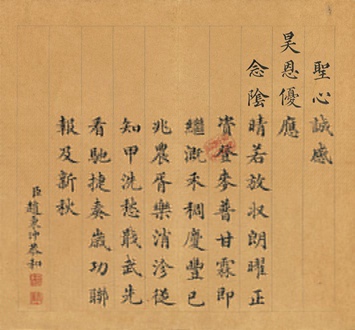 聖心誠感
昊恩優應
念陰
晴若放收朗曜正
資登麥普甘霖即
繼溉禾稠慶豐已
兆農胥樂消沴從
知甲洗愁戢武先
看馳捷奏歲功聯
報及新秋
臣趙秉沖恭和